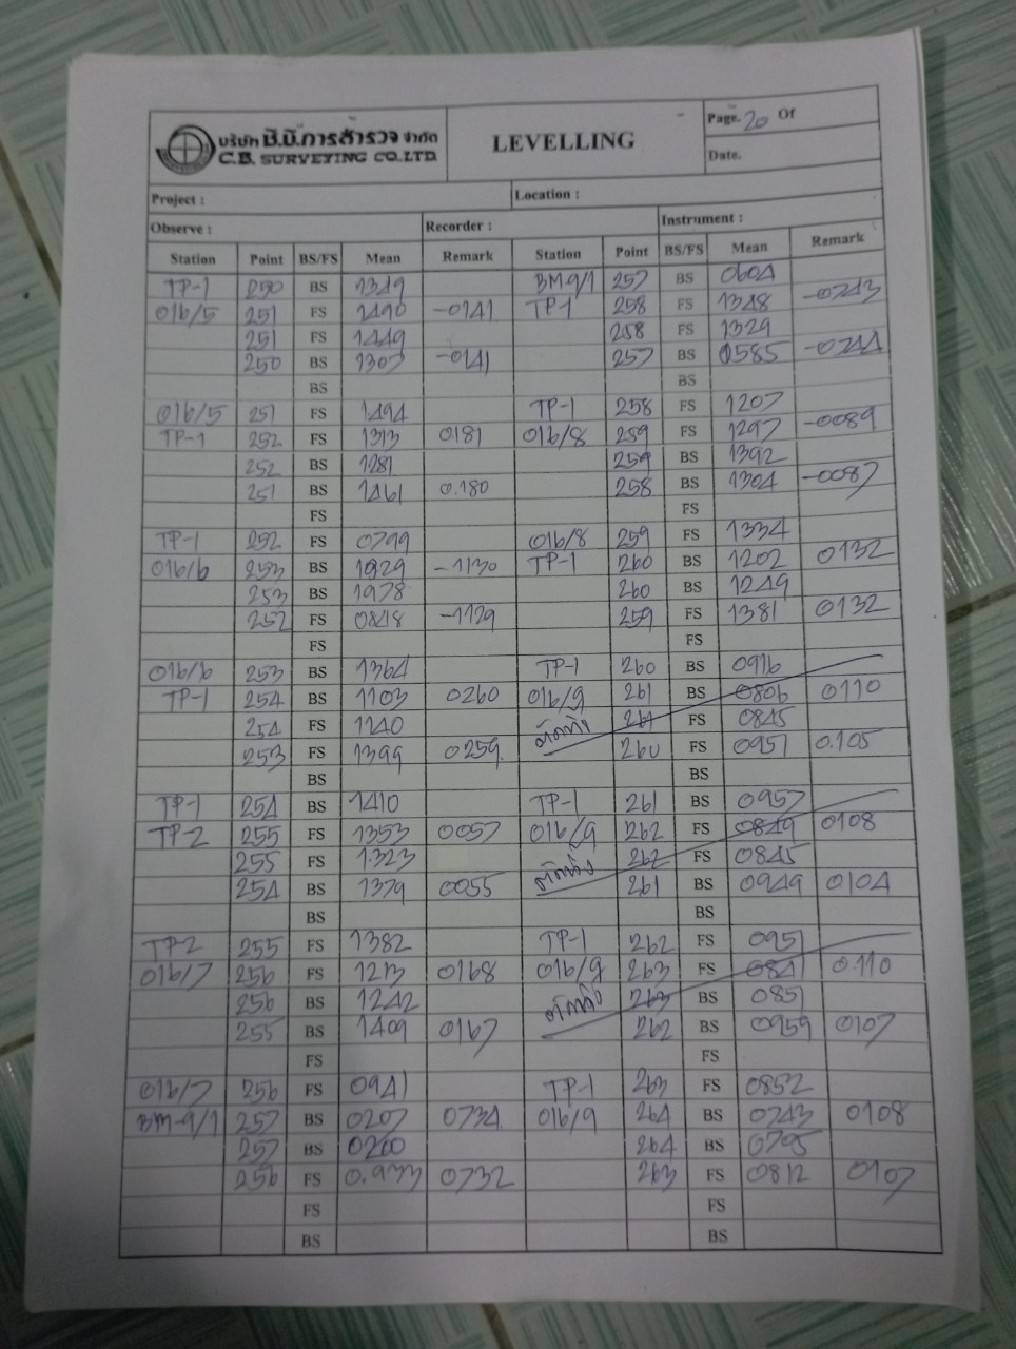 บริษัท ซี.บี.การสำรวจ จำกัด
C.B. SURVEYING CO.,LTD.
LEVELLING
Page. 20 Of
Date.
Project :
Location :
Observe :
Recorder :
Instrument :
Station Point BS/FS Mean Remark Station Point BS/FS Mean Remark
TP-1 250 BS 1349 BM9/1 257 BS 0604
016/5 251 FS 1490 -0141 TP-1 258 FS 1348 -0743
251 FS 1449 258 FS 1329
250 BS 1307 -0141 257 BS 0585 -0744
BS BS
016/5 251 FS 1494 TP-1 258 FS 1207
TP-1 252 FS 1313 0181 016/8 259 FS 1297 -0089
252 BS 1281 259 BS 1392
251 BS 1461 0.180 258 BS 1304 -0087
FS FS
TP-1 252 FS 0799 016/8 259 FS 1334
016/6 253 BS 1929 -1130 TP-1 260 BS 1202 0132
253 BS 1978 260 BS 1249
252 FS 0848 -1129 259 FS 1381 0132
FS FS
016/6 253 BS 1364 TP-1 260 BS 0916
TP-1 254 BS 1103 0260 016/9 261 BS 0806 0110
254 FS 1140 261 FS 0845
253 FS 1399 0259. 260 FS 0951 0.105
BS BS
TP-1 254 BS 1410 TP-1 261 BS 0957
TP-2 255 FS 1353 0057 016/9 262 FS 0849 0108
255 FS 1323 262 FS 0845
254 BS 1379 0055 261 BS 0949 0104
BS BS
TP-2 255 FS 1382 TP-1 262 FS 0951
016/7 256 FS 1213 0168 016/9 263 FS 0841 0.110
256 BS 1242 263 BS 0851
255 BS 1409 0167 262 BS 0959 0107
FS FS
016/7 256 FS 0941 TP-1 263 FS 0852
BM-9/1 257 BS 0207 0734 016/9 264 BS 0743 0108
257 BS 0200 264 BS 0795
256 FS 0.933 0732 263 FS 0812 0107
FS FS
BS BS